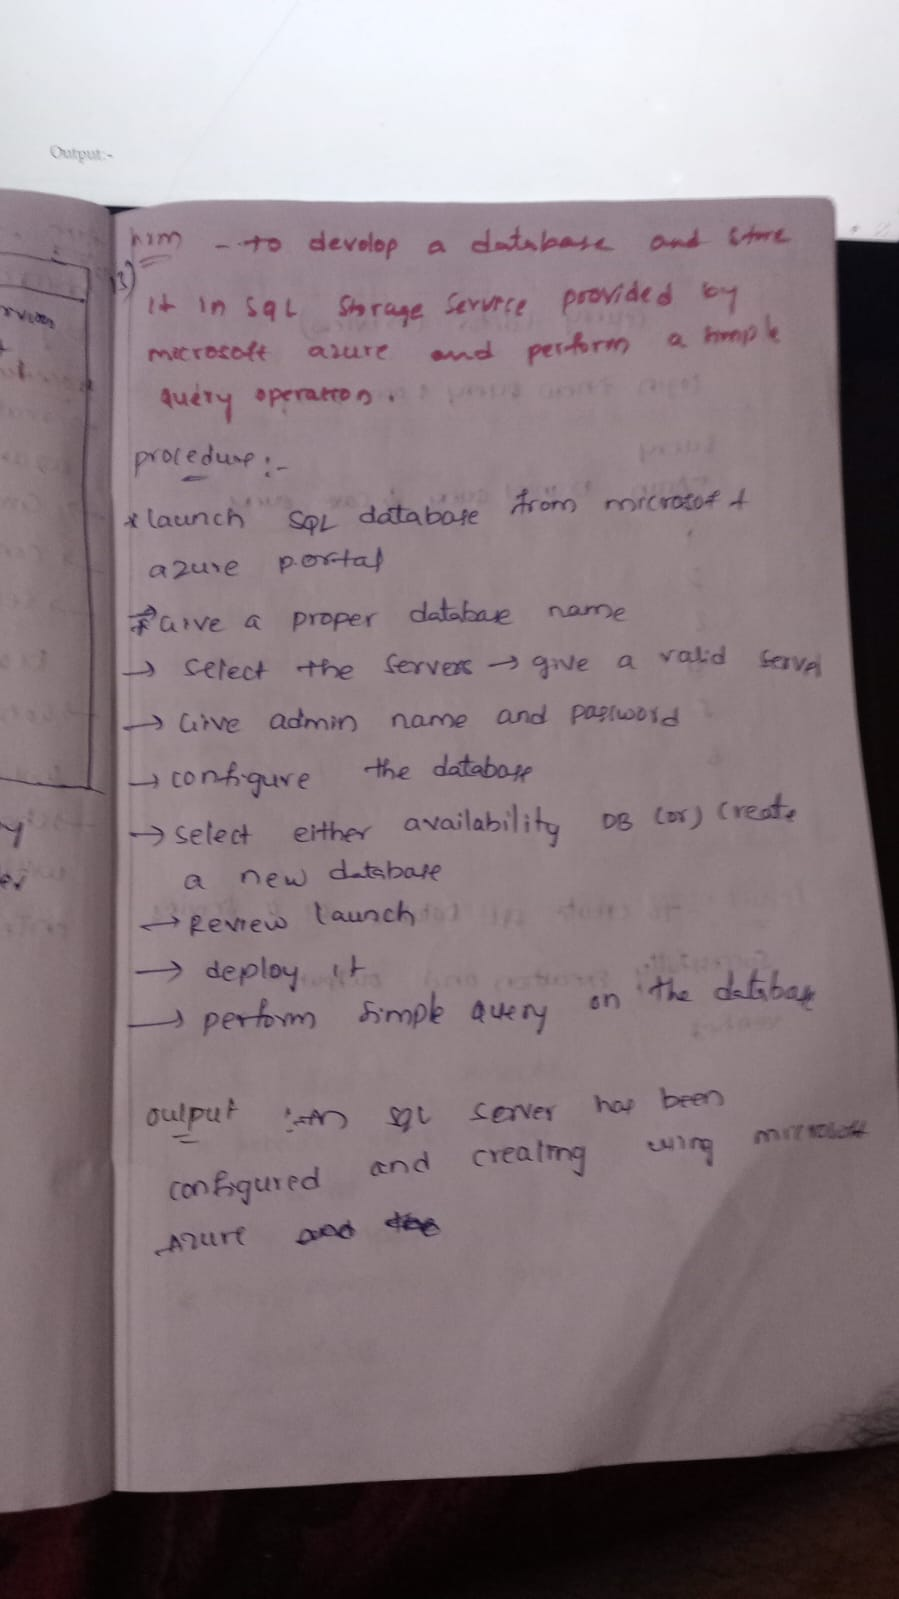 Output:-
Aim - to devolop a database and store
13)
it in SQL Storage Service provided by
microsoft azure and perform a simple
query operation.
procedure :-
* launch SQL database from microsoft
azure portal
→ Give a proper database name
→ select the servers → give a valid server
→ Give admin name and password
→ configure the database
→ select either availability DB (or) create
a new database
→ Review launch
→ deploy it
→ perform simple query on the database
output :- An SQL server has been
configured and creating using microsoft
Azure